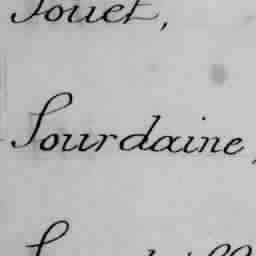 Jouet,
Sourdaine,